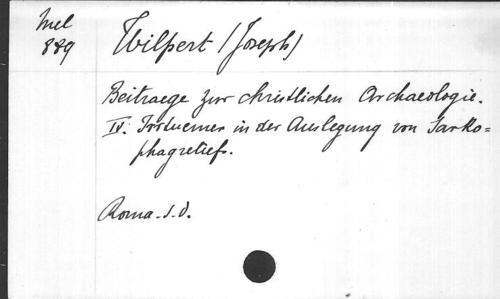 Mel
889
Wilpert (Joseph)
Beitraege zur christlichen Archaeologie.
IV. Irrtuemer in der Auslegung von Sarko=
phagreliefs.
Roma. s.d.